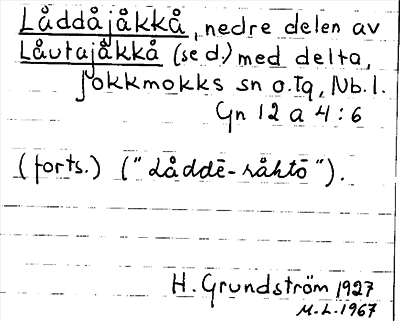 Låddåjåkkå, nedre delen av
Låutajåkkå (se d.) med delta,
Jokkmokks sn o. tg, Nb. l.
Gn 12 a 4:6
(forts.) ("Låddē-råhtō").
H. Grundström 1927
M.L. 1967